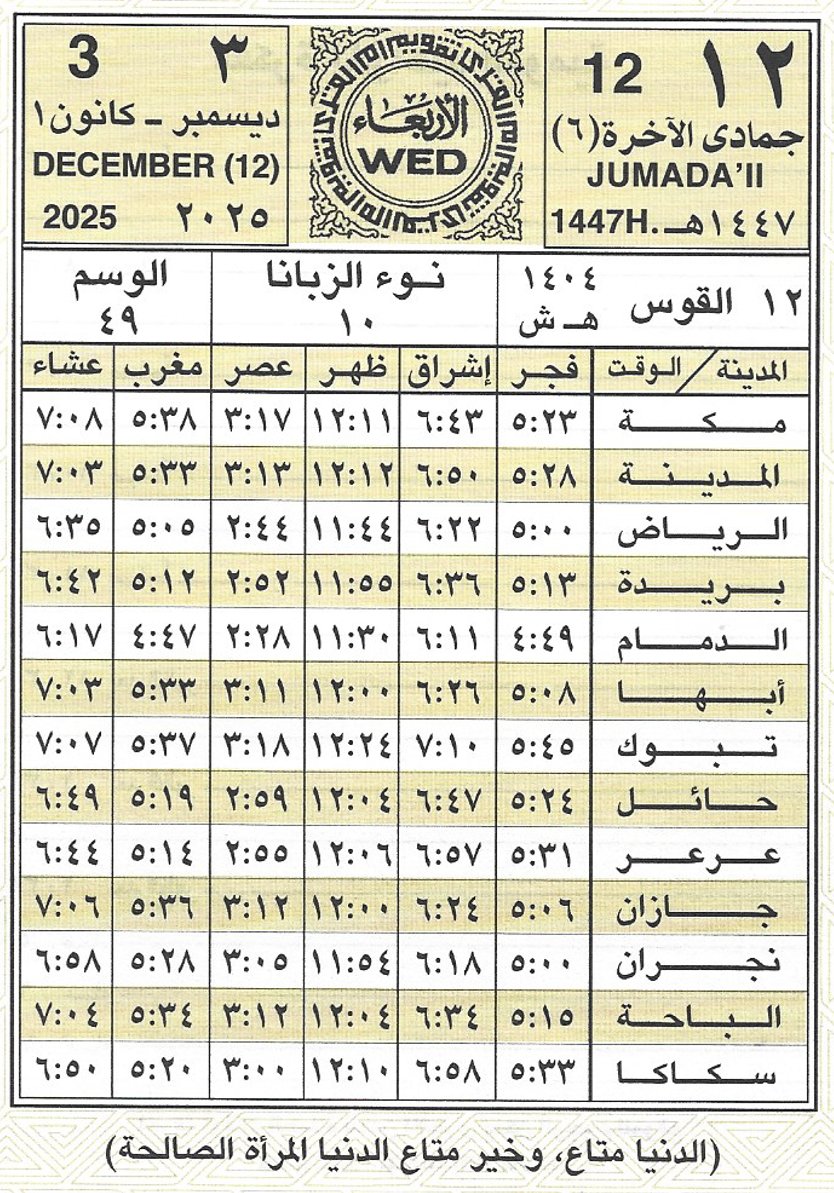 ١٢ 12
جمادى الآخرة (٦)
JUMADA'II
١٤٤٧هـ. 1447H
تقويم أم القرى
الأربعاء
WED
٣ 3
ديسمبر - كانون ١
DECEMBER (12)
2025 ٢٠٢٥
١٢ القوس ١٤٠٤ هـ ش
نوء الزبانا ١٠
الوسم ٤٩
المدينة / الوقت فجر إشراق ظهر عصر مغرب عشاء
مكة ٥:٢٣ ٦:٤٣ ١٢:١١ ٣:١٧ ٥:٣٨ ٧:٠٨
المدينة ٥:٢٨ ٦:٥٠ ١٢:١٢ ٣:١٣ ٥:٣٣ ٧:٠٣
الرياض ٥:٠٠ ٦:٢٢ ١١:٤٤ ٢:٤٤ ٥:٠٥ ٦:٣٥
بريدة ٥:١٣ ٦:٣٦ ١١:٥٥ ٢:٥٢ ٥:١٢ ٦:٤٢
الدمام ٤:٤٩ ٦:١١ ١١:٣٠ ٢:٢٨ ٤:٤٧ ٦:١٧
أبها ٥:٠٨ ٦:٢٦ ١٢:٠٠ ٣:١١ ٥:٣٣ ٧:٠٣
تبوك ٥:٤٥ ٧:١٠ ١٢:٢٤ ٣:١٨ ٥:٣٧ ٧:٠٧
حائل ٥:٢٤ ٦:٤٧ ١٢:٠٤ ٢:٥٩ ٥:١٩ ٦:٤٩
عرعر ٥:٣١ ٦:٥٧ ١٢:٠٦ ٢:٥٥ ٥:١٤ ٦:٤٤
جازان ٥:٠٦ ٦:٢٤ ١٢:٠٠ ٣:١٢ ٥:٣٦ ٧:٠٦
نجران ٥:٠٠ ٦:١٨ ١١:٥٤ ٣:٠٥ ٥:٢٨ ٦:٥٨
الباحة ٥:١٥ ٦:٣٤ ١٢:٠٤ ٣:١٢ ٥:٣٤ ٧:٠٤
سكاكا ٥:٣٣ ٦:٥٨ ١٢:١٠ ٣:٠٠ ٥:٢٠ ٦:٥٠
(الدنيا متاع، وخير متاع الدنيا المرأة الصالحة)